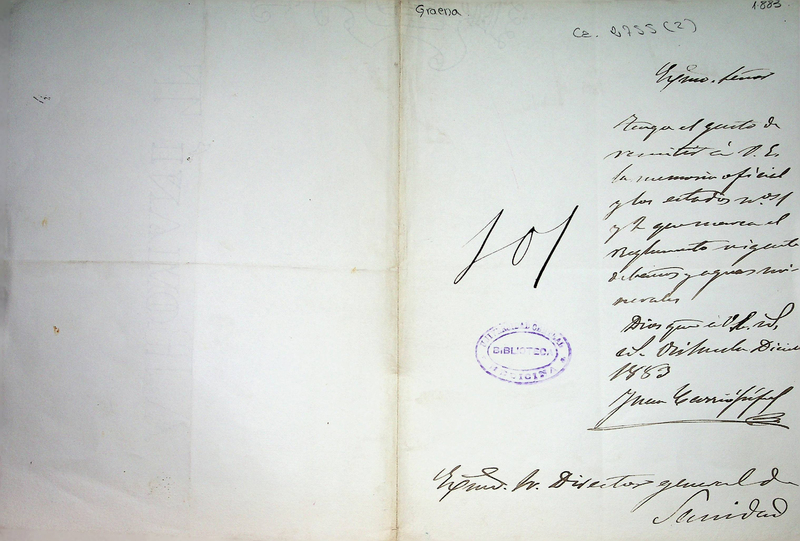 Graena
1.883
Ca. 2755 (2)
Exmo. Señor
Tengo el gusto de
remitir á V. E.
la memoria oficial
y los estados nos. 1
y 2 que marca el
Reglamento vigente
de baños y aguas mi-
nerales
Dios gue á V. E. ms
as. Orihuela Dicie
1883
Juan
101
BIBLIOTECA
MEDICINA
Exmo. Sr. Director general de
Sanidad